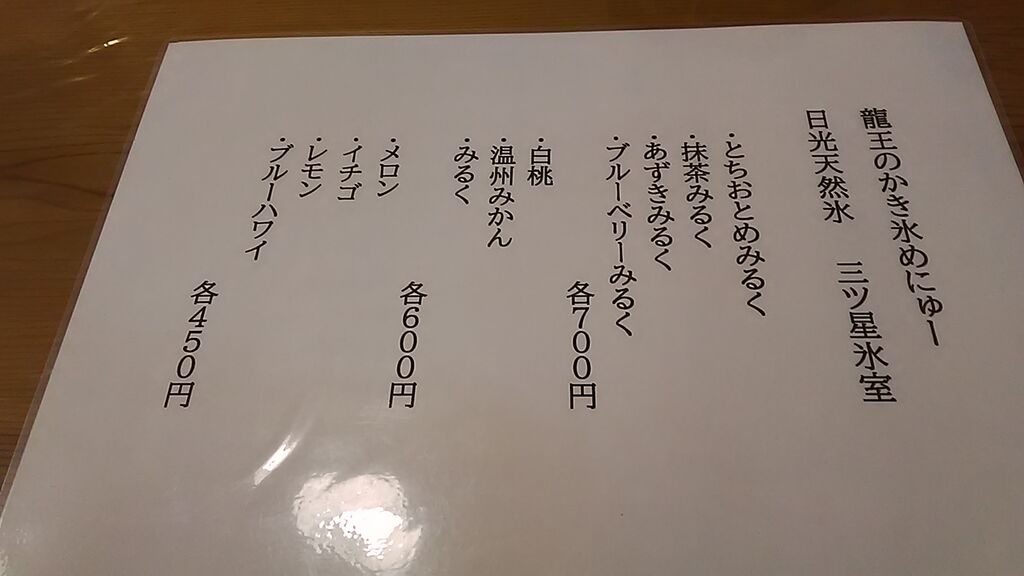 龍王のかき氷めにゅー
日光天然氷　三ツ星氷室
・とちおとめみるく
・抹茶みるく
・あずきみるく
・ブルーベリーみるく
各７００円
・白桃
・温州みかん
・みるく
各６００円
・メロン
・イチゴ
・レモン
・ブルーハワイ
各４５０円